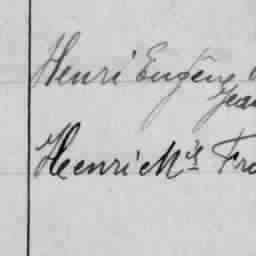 Henri Eugène
Jea
Henri Mis Fra